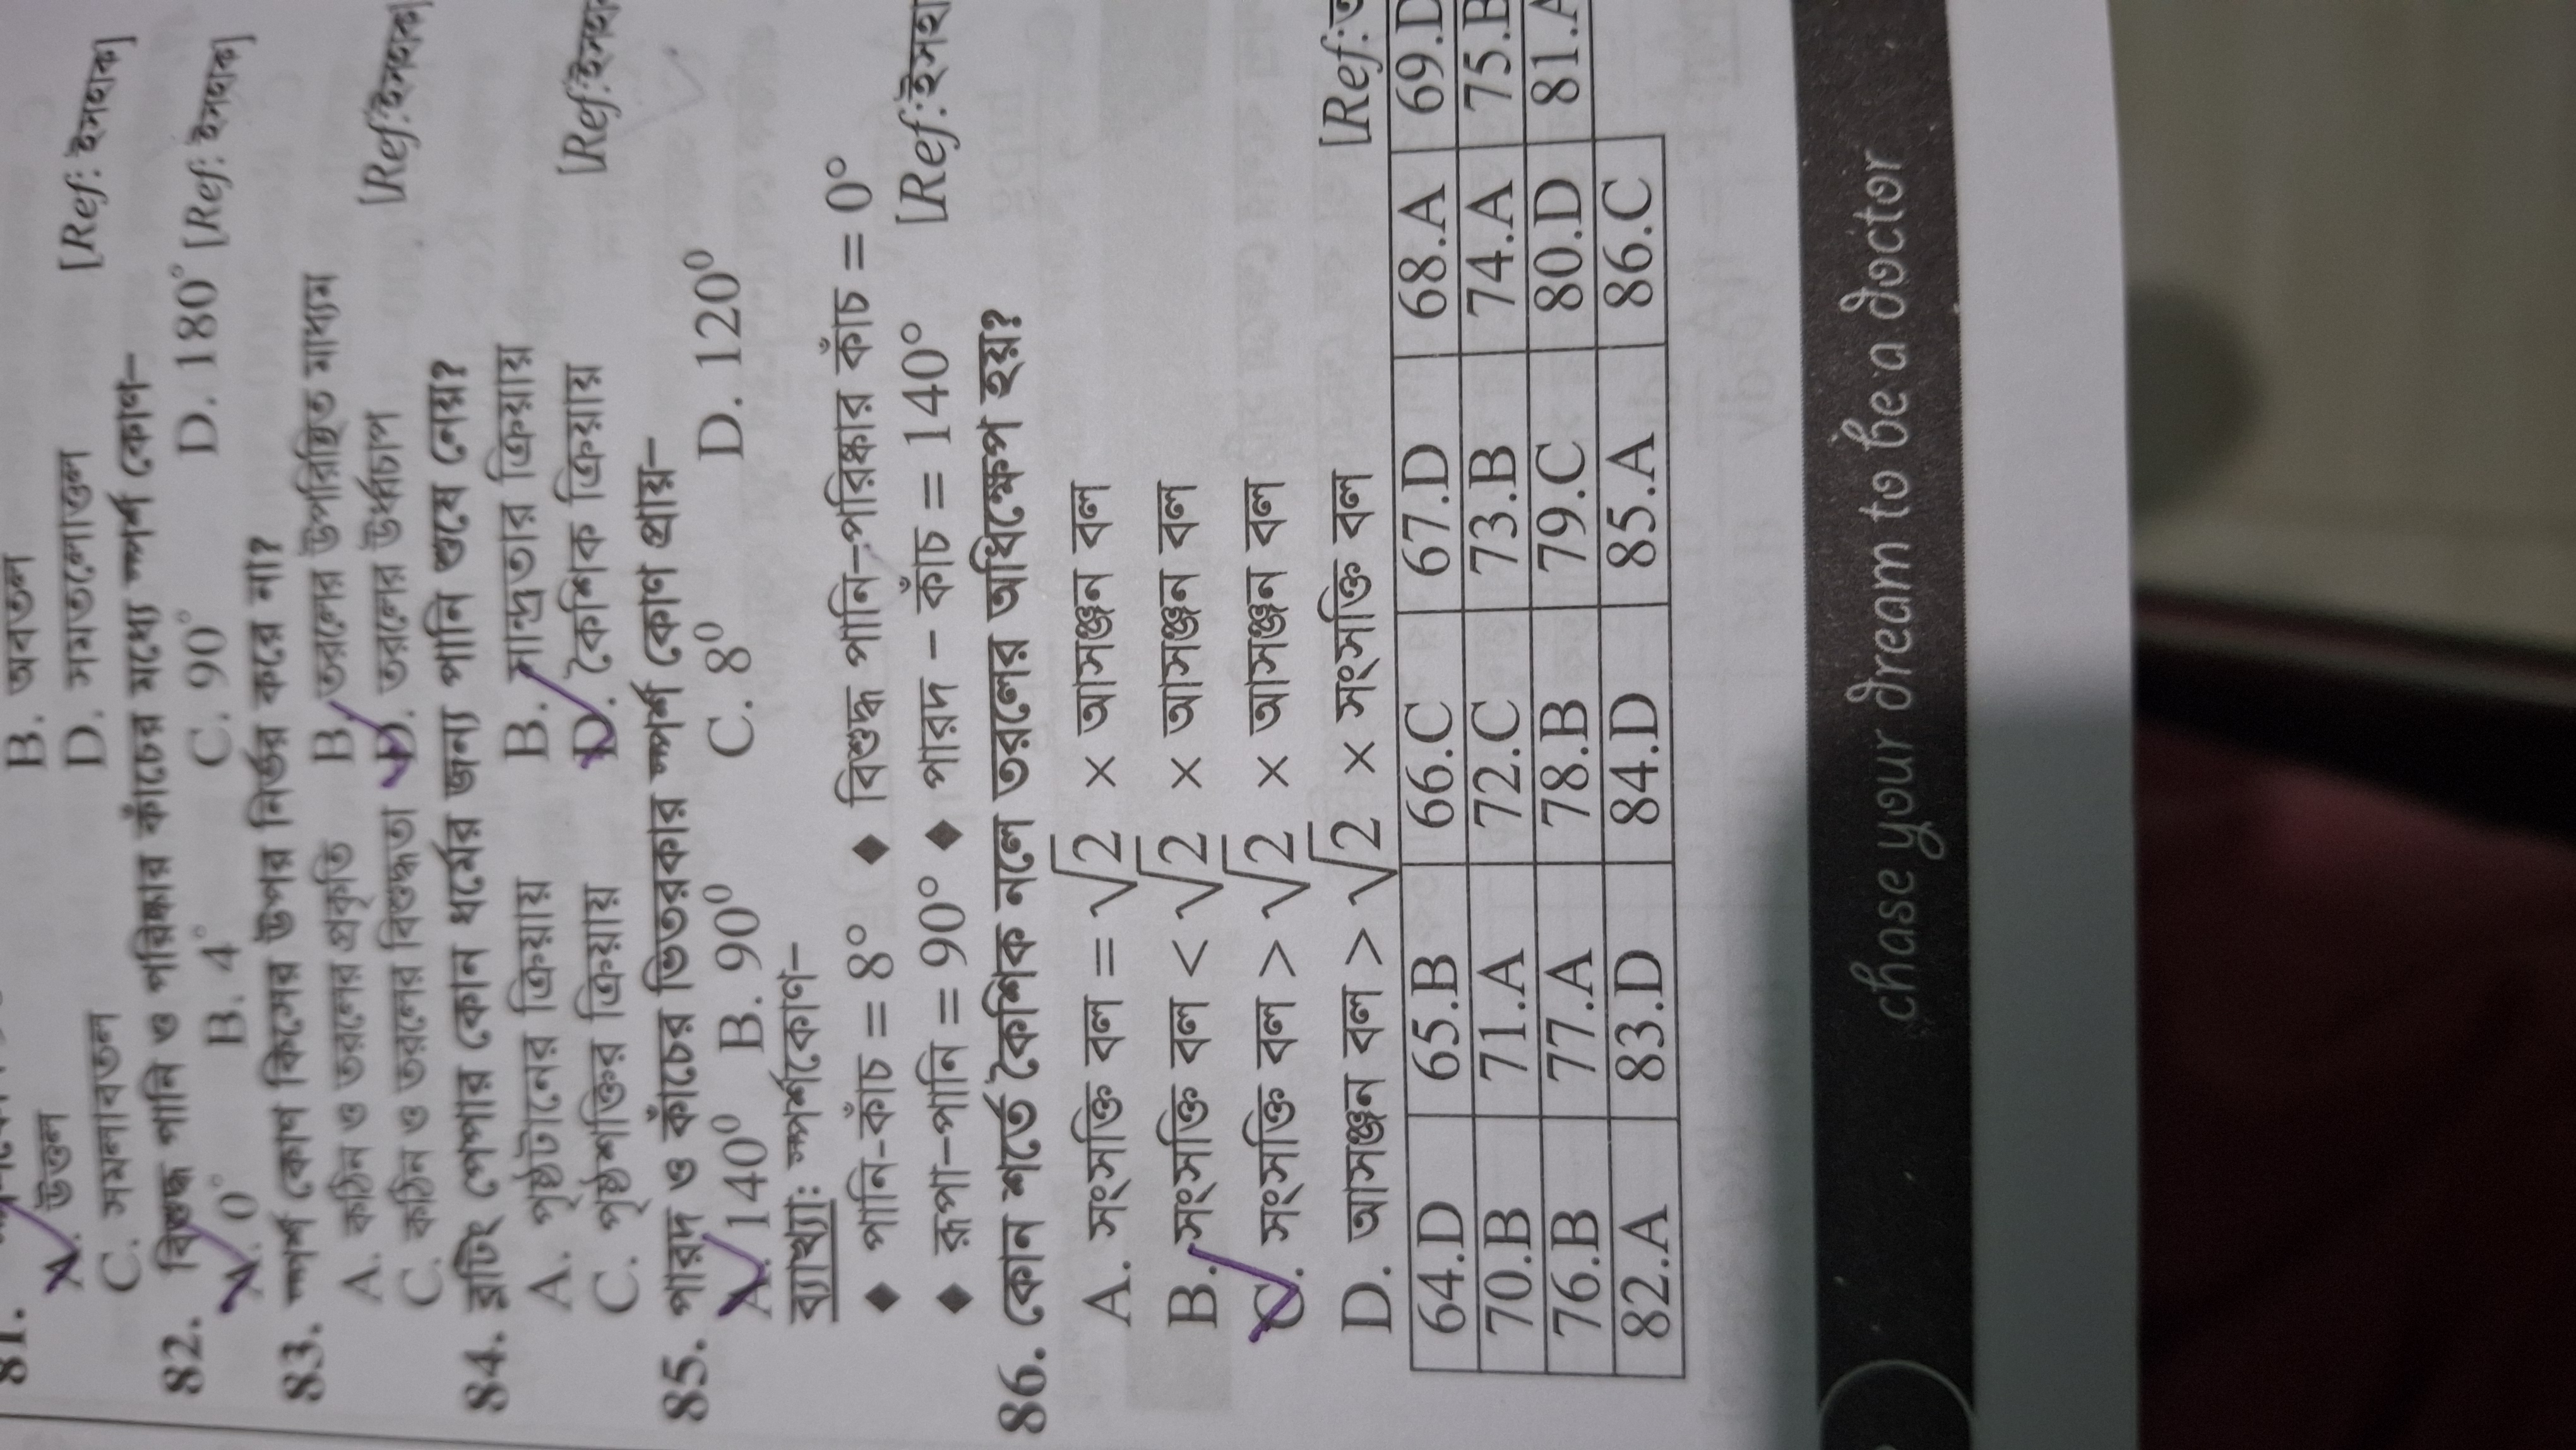 81.
A. উত্তল B. অবতল
C. সমলাবতল D. সমতলোত্তল [Ref: ইসহাক]
82. বিশুদ্ধ পানি ও পরিষ্কার কাঁচের মধ্যে স্পর্শ কোণ–
A. 0° B. 4° C. 90° D. 180° [Ref: ইসহাক]
83. স্পর্শ কোণ কিসের উপর নির্ভর করে না?
A. কঠিন ও তরলের প্রকৃতি B. তরলের উপরিস্থিত মাধ্যম
C. কঠিন ও তরলের বিশুদ্ধতা D. তরলের উর্ধ্বচাপ [Ref:ইসহাক]
84. ব্লটিং পেপার কোন ধর্মের জন্য পানি শুষে নেয়?
A. পৃষ্ঠটানের ক্রিয়ায় B. সান্দ্রতার ক্রিয়ায়
C. পৃষ্ঠশক্তির ক্রিয়ায় D. কৈশিক ক্রিয়ায় [Ref:ইসহা
85. পারদ ও কাঁচের ভিতরকার স্পর্শ কোণ প্রায়–
A. 140⁰ B. 90⁰ C. 8⁰ D. 120⁰
ব্যাখ্যা: স্পর্শকোণ–
♦ পানি-কাঁচ = 8° ♦ বিশুদ্ধ পানি–পরিষ্কার কাঁচ = 0°
♦ রূপা–পানি = 90° ♦ পারদ – কাঁচ = 140° [Ref:ইসহা
86. কোন শর্তে কৈশিক নলে তরলের অধিক্ষেপ হয়?
A. সংসক্তি বল = √2 × আসঞ্জন বল
B. সংসক্তি বল < √2 × আসঞ্জন বল
C. সংসক্তি বল > √2 × আসঞ্জন বল
D. আসঞ্জন বল > √2 × সংসক্তি বল [Ref:
64.D 65.B 66.C 67.D 68.A 69.D
70.B 71.A 72.C 73.B 74.A 75.B
76.B 77.A 78.B 79.C 80.D 81.A
82.A 83.D 84.D 85.A 86.C
chase your dream to be a doctor